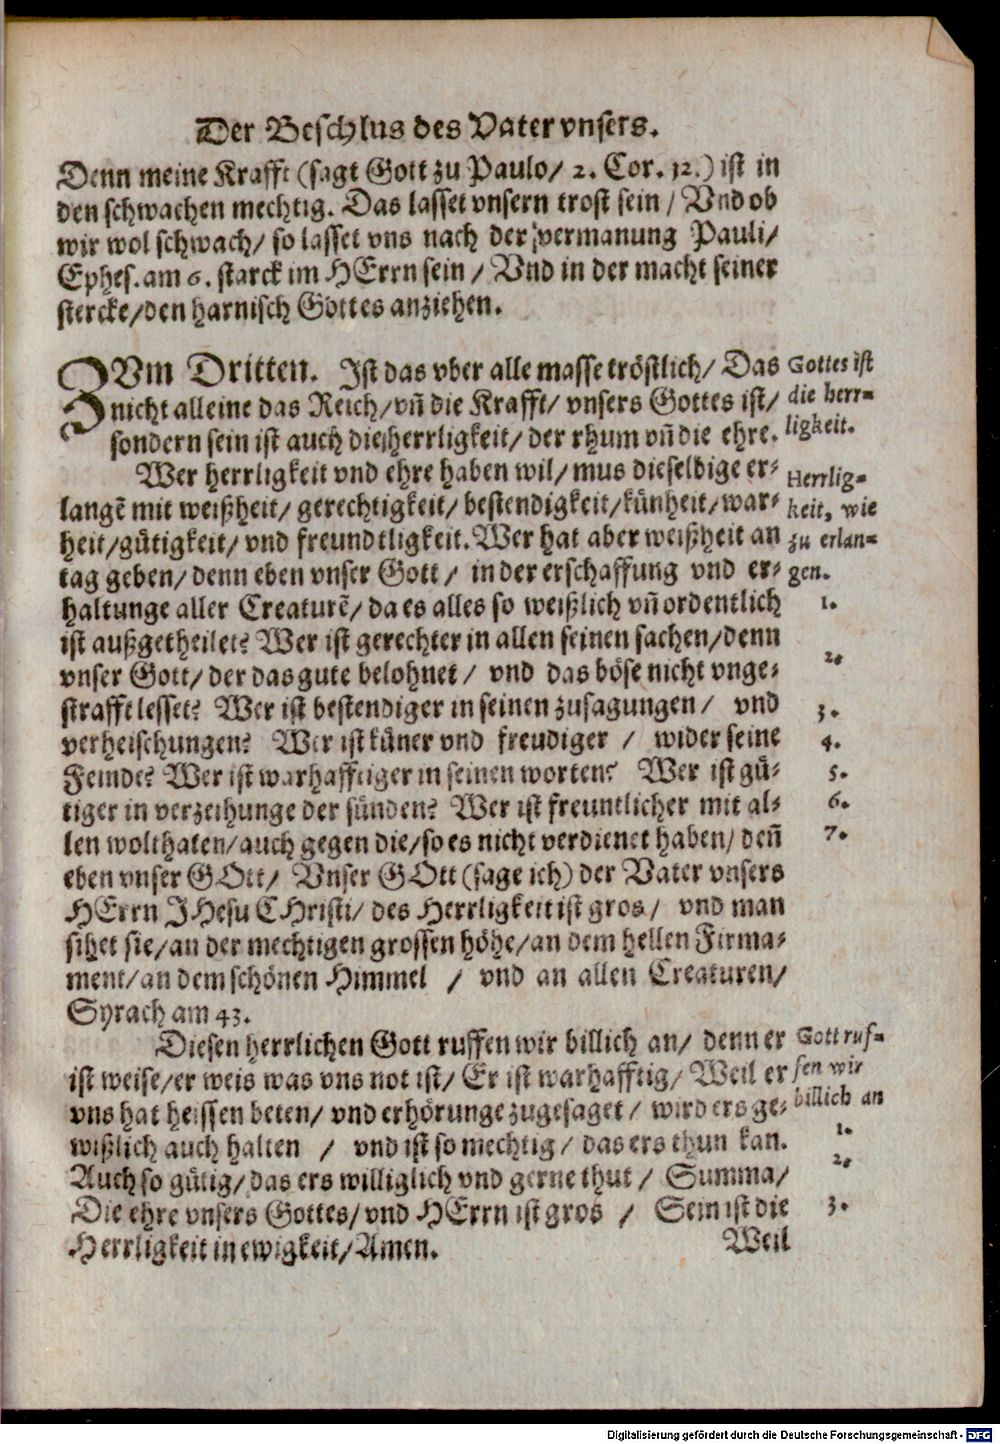 Der Beschlus des Vater vnsers.
Denn meine Krafft (sagt Gott zu Paulo/ 2. Cor. 12.) ist in
den schwachen mechtig. Das lasset vnsern trost sein / Vnd ob
wir wol schwach/ so lasset vns nach der vermanung Pauli/
Ephes. am 6. starck im HErrn sein / Vnd in der macht seiner
stercke/den harnisch Gottes anziehen.
ZVm Dritten. Ist das vber alle masse tröstlich/ Das
nicht alleine das Reich/vn̄ die Krafft/ vnsers Gottes ist/
sondern sein ist auch die herrligkeit/ der rhum vn̄ die ehre.
Gottes ist
die herr=
ligkeit.
Wer herrligkeit vnd ehre haben wil/ mus dieselbige er=
langē mit weißheit/ gerechtigkeit/ bestendigkeit/künheit/war=
heit/gütigkeit/ vnd freundtligkeit. Wer hat aber weißheit an
tag geben/ denn eben vnser Gott / in der erschaffung vnd er=
haltunge aller Creaturē/ da es alles so weißlich vn̄ ordentlich
ist außgetheilet? Wer ist gerechter in allen seinen sachen/denn
vnser Gott/ der das gute belohnet / vnd das böse nicht vnge=
strafft lesset? Wer ist bestendiger in seinen zusagungen / vnd
verheischungen? Wer ist küner vnd freudiger / wider seine
Feinde? Wer ist warhafftiger in seinen worten? Wer ist gü=
tiger in verzeihunge der sünden? Wer ist freuntlicher mit al=
len wolthaten/auch gegen die/so es nicht verdienet haben/ den̄
eben vnser GOtt/ Vnser GOtt (sage ich) der Vater vnsers
HErrn JHesu CHristi/ des Herrligkeit ist gros / vnd man
sihet sie/an der mechtigen grossen höhe/an dem hellen Firma=
ment/an dem schönen Himmel / vnd an allen Creaturen/
Syrach am 43.
Herrlig=
keit, wie
zu erlan=
gen.
1.
2.
3.
4.
5.
6.
7.
Diesen herrlichen Gott ruffen wir billich an/ denn er
ist weise/er weis was vns not ist/ Er ist warhafftig/ Weil er
vns hat heissen beten/ vnd erhörunge zugesaget / wird ers ge=
wißlich auch halten / vnd ist so mechtig / das ers thun kan.
Auch so gütig/ das ers williglich vnd gerne thut / Summa/
Die ehre vnsers Gottes/ vnd HErrn ist gros / Sein ist die
Herrligkeit in ewigkeit/Amen.
Gott ruf=
fen wir
billich an
1.
2.
3.
Weil
Digitalisierung gefördert durch die Deutsche Forschungsgemeinschaft - DFG